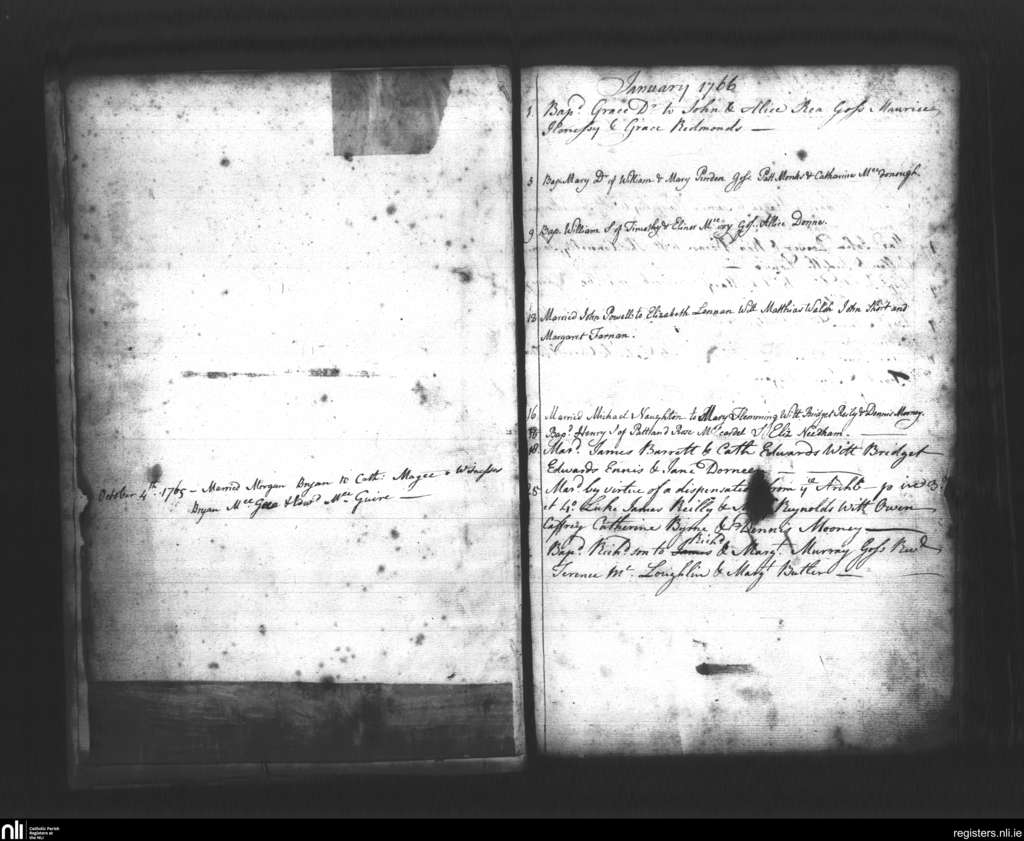 October 4th. 1765 – Married Morgan Bryan to Cath: Magee Witnesses
Bryan Mcc Gee & Edwd Mcc Guire —
January 1766
1. Bapd. Grace Dr to John & Alice Rea Goss Maurice
& Grace Redmonds —
3 Bap. Mary Dr of William & Mary Goss. Patt Monks & Catharine Mcc Donough
9 Bap. William S of Timothy & Elinor Goss. Allice Dorine.
13 Married John Powell to Elizabeth Lennan Witt Matthias Walsh John Short and
Margaret Farnan.
16 Married Michael Naughton to Mary Flemming Witt Bridget Reily & Dennis Mooney.
18 Bapd Henry S of Patt and Rose Mcc cardel S Eliz Needham.
18 Mard. James Barrett & Cath Edwards Witt Bridget
Edwards Ennis & Jane Dorneen —
25 Mard by virtue of a dispensation from ye Archb – in 3o
et 4o Luke James Reilly & Reynolds Witt Owen
Caffrey Catherine Byrne & Dennis Mooney —
Richd
Bapd. Richd son to James & Margt. Murray Goss Revd
Terence Mc Loughlin & Margt Butler —
nli
Catholic Parish
Registers at
the NLI
registers.nli.ie